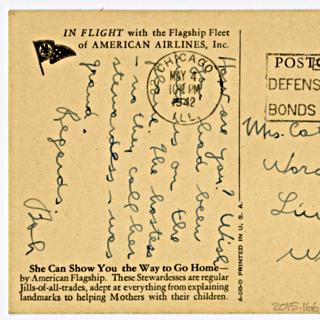 IN FLIGHT with the Flagship Fleet
of AMERICAN AIRLINES, Inc.
CHICAGO
MAY 4
PM
1942
ILL.
POST
DEFENS
BONDS
How are you? Wish
you had been
us on the
The hostess
no they call her
stewardess - was
grand.
Regards,
Bob
Mrs. Cat
She Can Show You the Way to Go Home—
by American Flagship. These Stewardesses are regular
Jills-of-all-trades, adept at everything from explaining
landmarks to helping Mothers with their children.
A-20-D PRINTED IN U. S. A.
2015.166